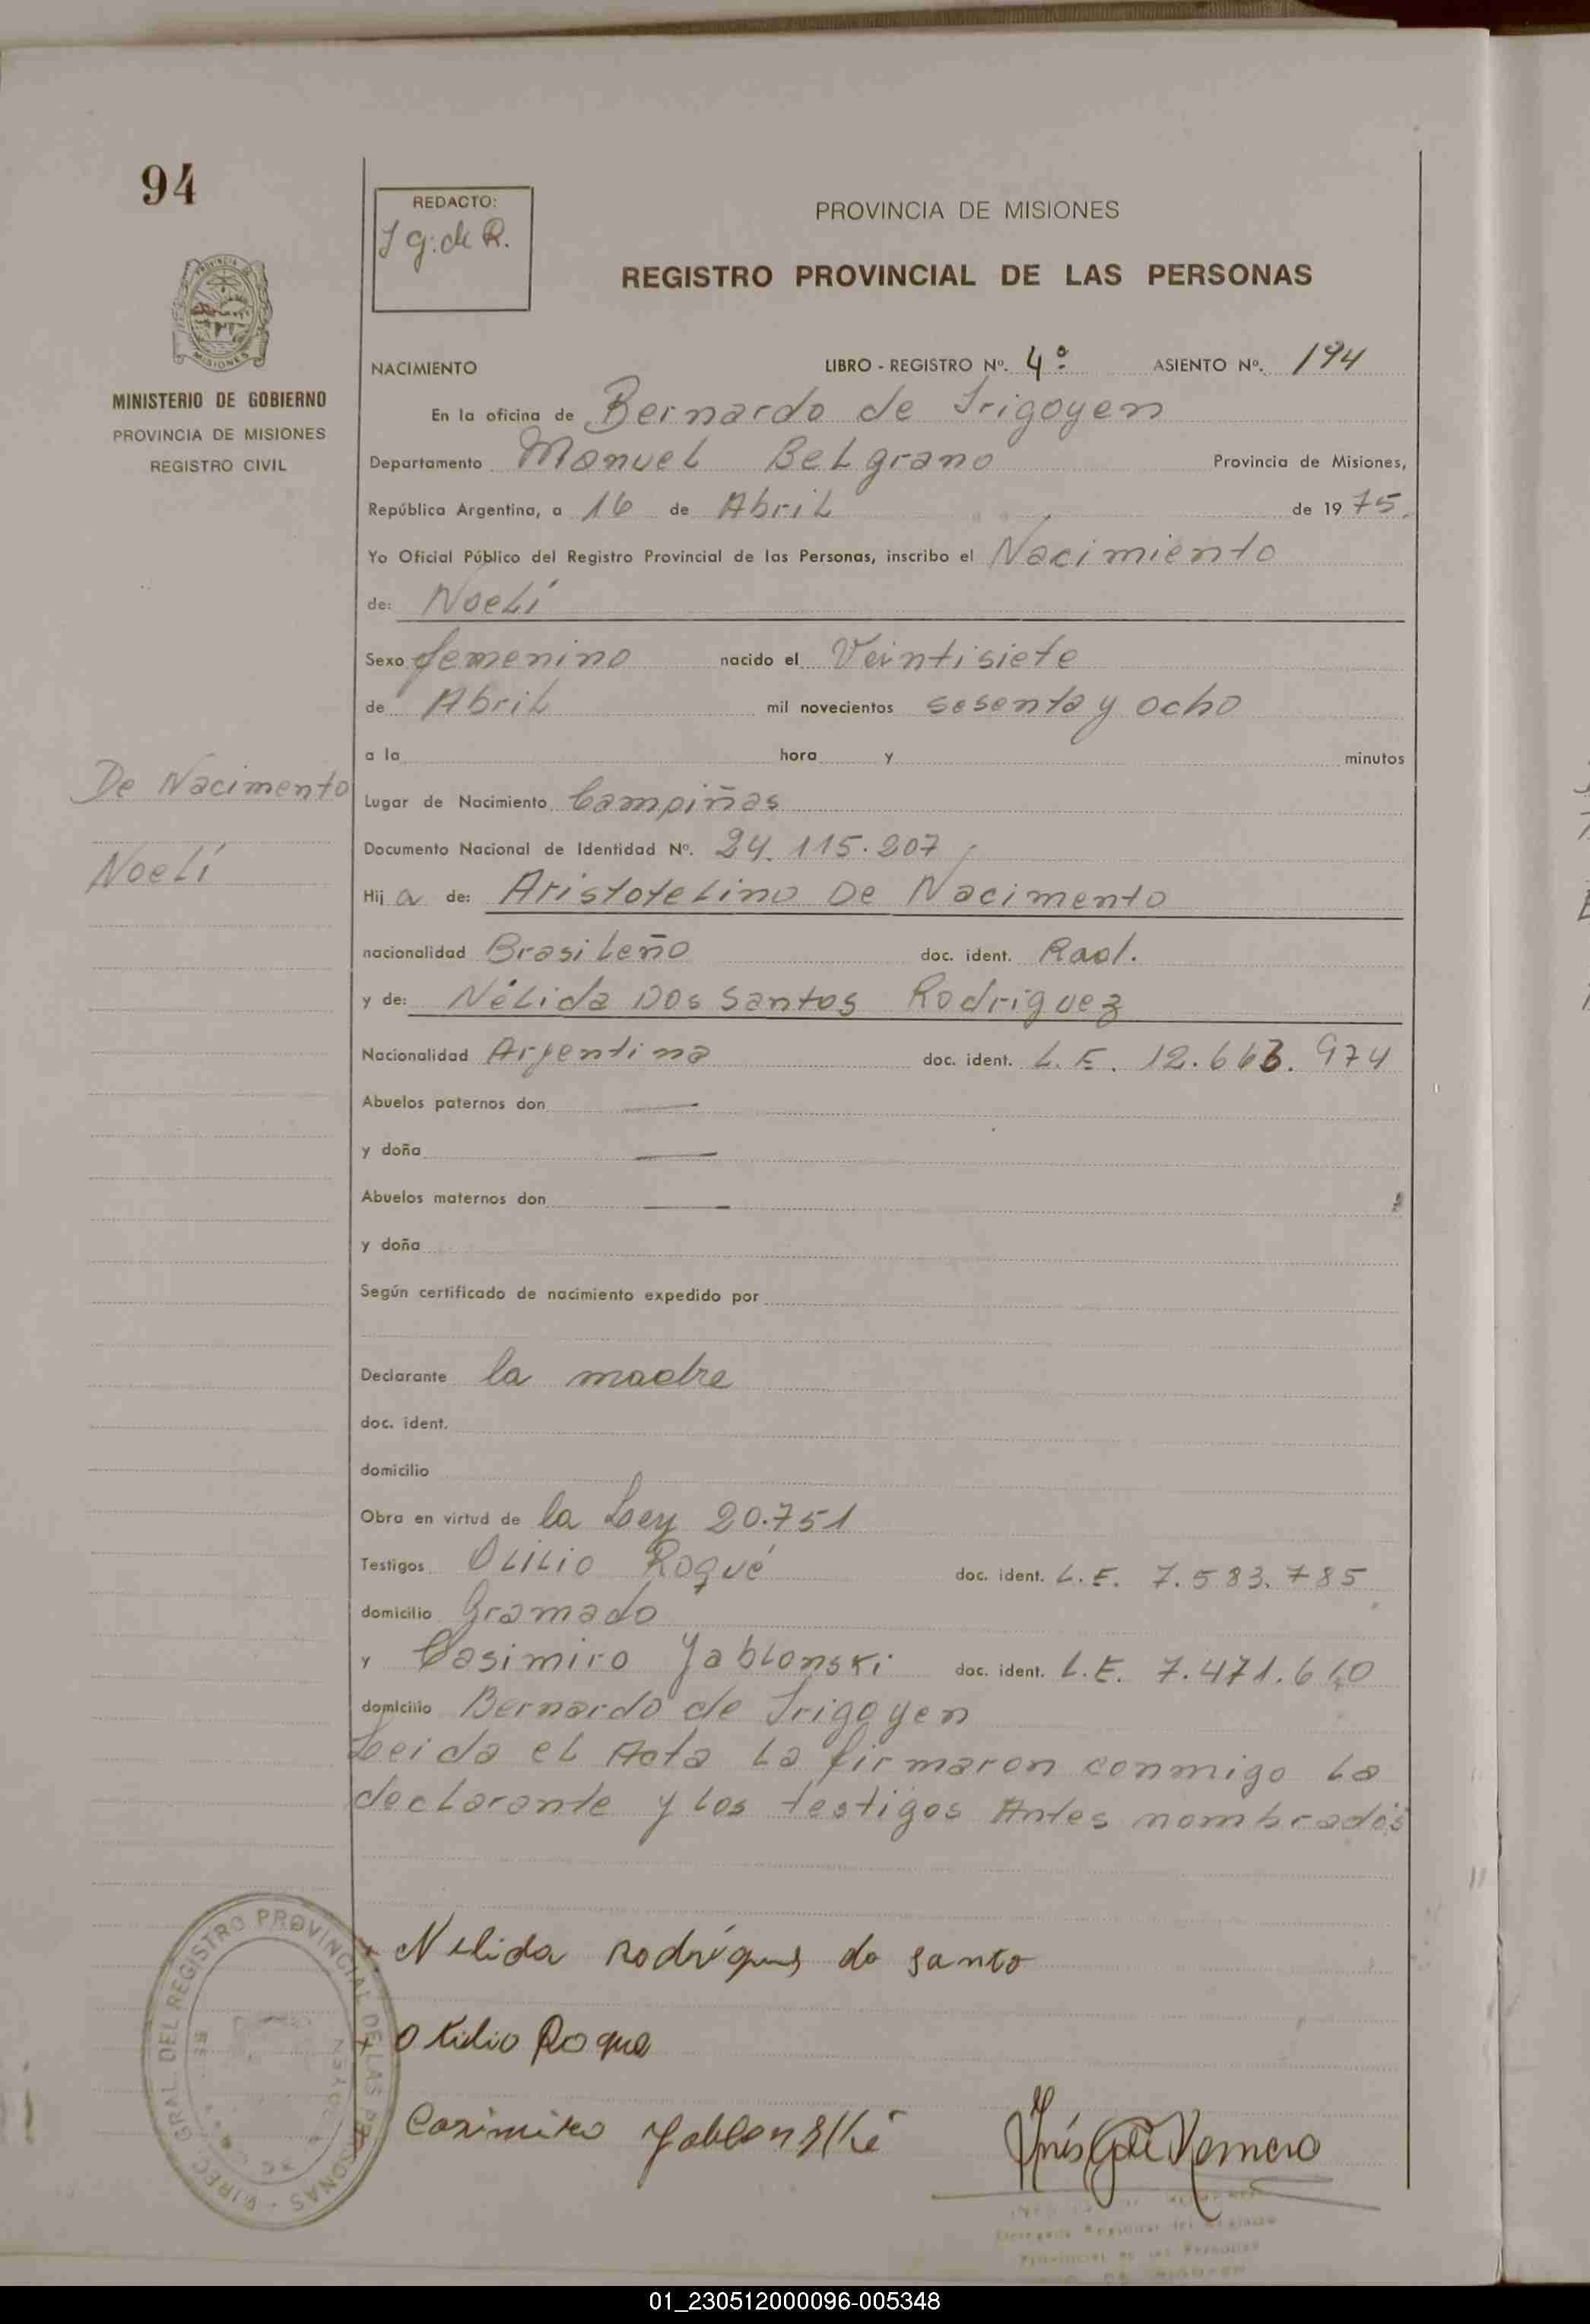 94
REDACTO:
I g. de R.
PROVINCIA DE MISIONES
REGISTRO PROVINCIAL DE LAS PERSONAS
MISIONES
MINISTERIO DE GOBIERNO
PROVINCIA DE MISIONES
REGISTRO CIVIL
NACIMIENTO LIBRO - REGISTRO Nº. 4º ASIENTO Nº. 194
En la oficina de Bernardo de Irigoyen
Departamento Manuel Belgrano Provincia de Misiones,
República Argentina, a 16 de Abril de 1975.
Yo Oficial Público del Registro Provincial de las Personas, inscribo el Nacimiento
de: Noelí
Sexo femenino nacido el Veintisiete
de Abril mil novecientos sesenta y ocho
a la hora y minutos
De Nacimento
Noelí
Lugar de Nacimiento Campiñas
Documento Nacional de Identidad Nº. 24.115.207
Hija de: Aristotelino De Nacimento
nacionalidad Brasileño doc. ident.
y de: Nélida Dos Santos Rodriguez
Nacionalidad Argentina doc. ident. L.E. 12.663.974
Abuelos paternos don —
y doña —
Abuelos maternos don —
y doña
Según certificado de nacimiento expedido por
Declarante la madre
doc. ident.
domicilio
Obra en virtud de la Ley 20.751
Testigos Olilio Roqué doc. ident. L.E. 7.583.785
domicilio Gramado
y Casimiro Yablonski doc. ident. L.E. 7.471.610
domicilio Bernardo de Irigoyen
Leida el Acta la firmaron conmigo la
declarante y los testigos Antes nombrados
Nelida Rodrigues do santo
Olidio Roque
Casimiro Yablonski
Inés G de Romero
DIREC. GRAL. DEL REGISTRO PROVINCIAL DE LAS PERSONAS
01_230512000096-005348